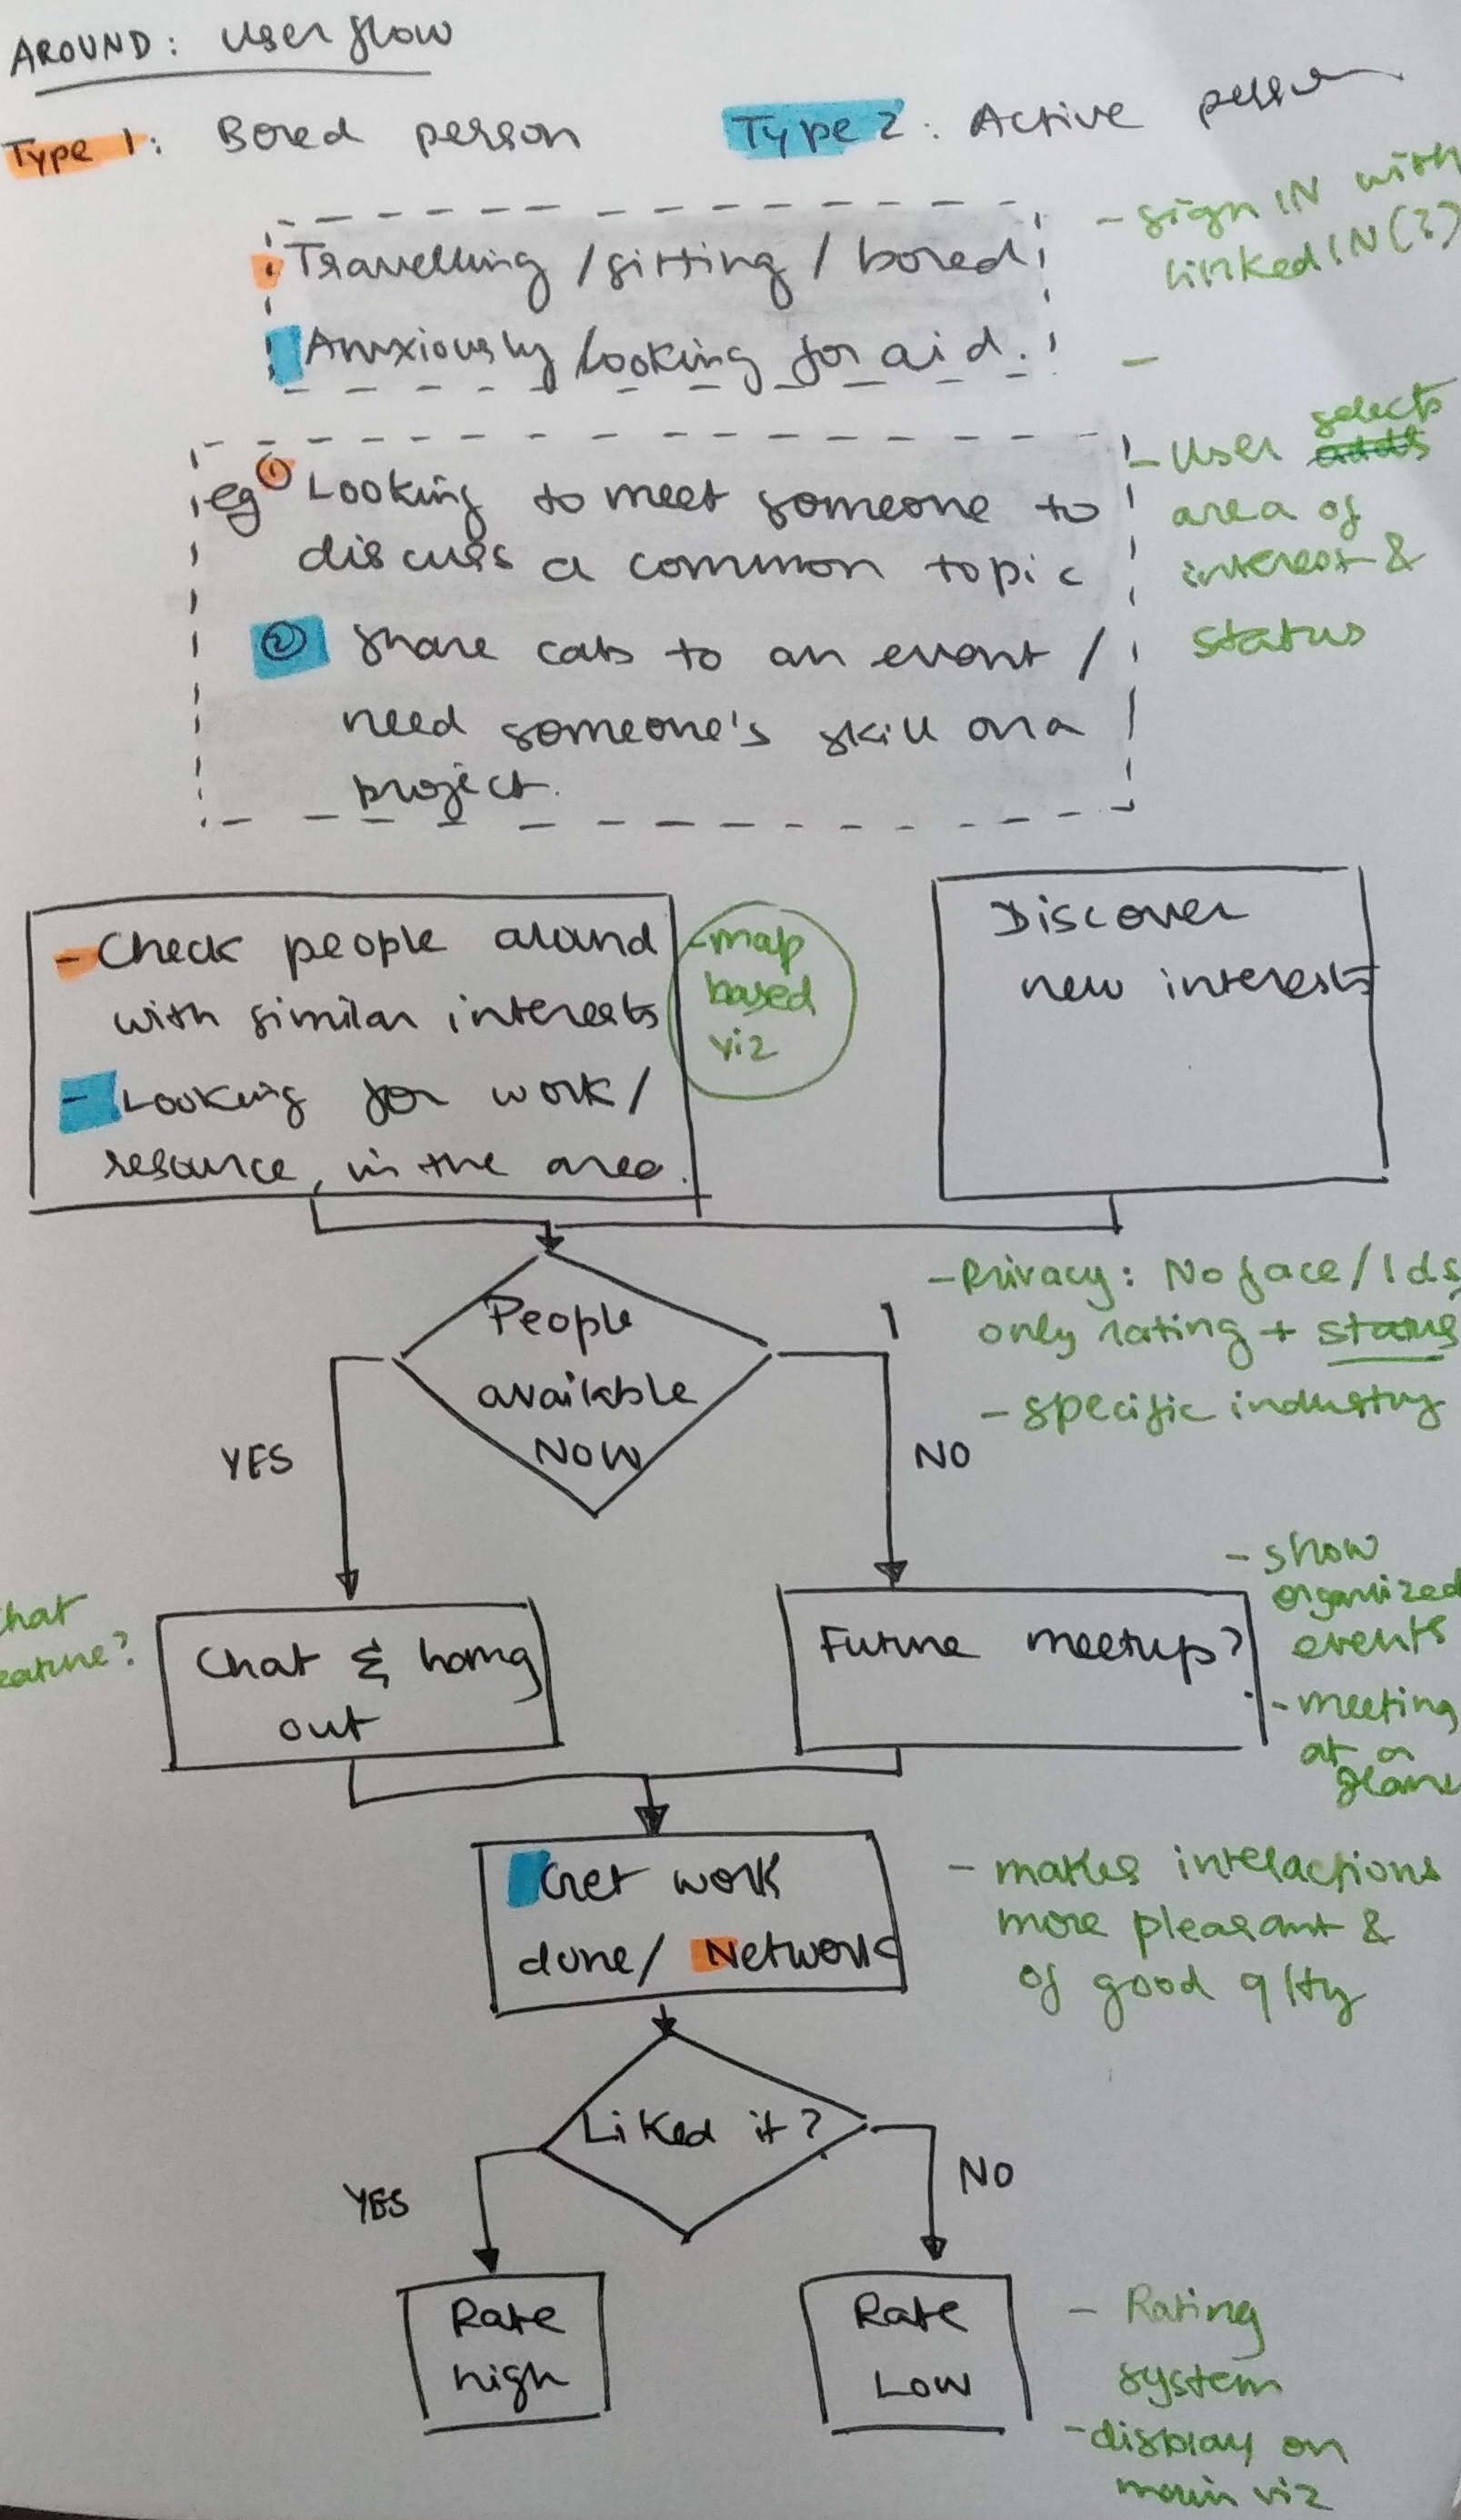 AROUND: User flow
Type 1: Bored person
Type 2: Active person
Travelling / sitting / bored
Anxiously looking for aid.
- sign IN with
linked IN (?)
-
eg ① Looking to meet someone to
discuss a common topic
② Share cabs to an event /
need someone's skill on a
project.
- User selects
area of
interest &
status
- Check people around
with similar interests
- Looking for work /
resource, in the area.
- map
based
viz
Discover
new interests
People
available
NOW
- Privacy: No face / Ids,
only rating + status
- specific industry
YES
NO
Chat
Chat & hang
out
Future meetup?
- show
organized
events
- meeting
at a
Get work
done / Network
- makes interactions
more pleasant &
of good qlty
Liked it?
YES
NO
Rate
high
Rate
Low
- Rating
system
- display on
main viz